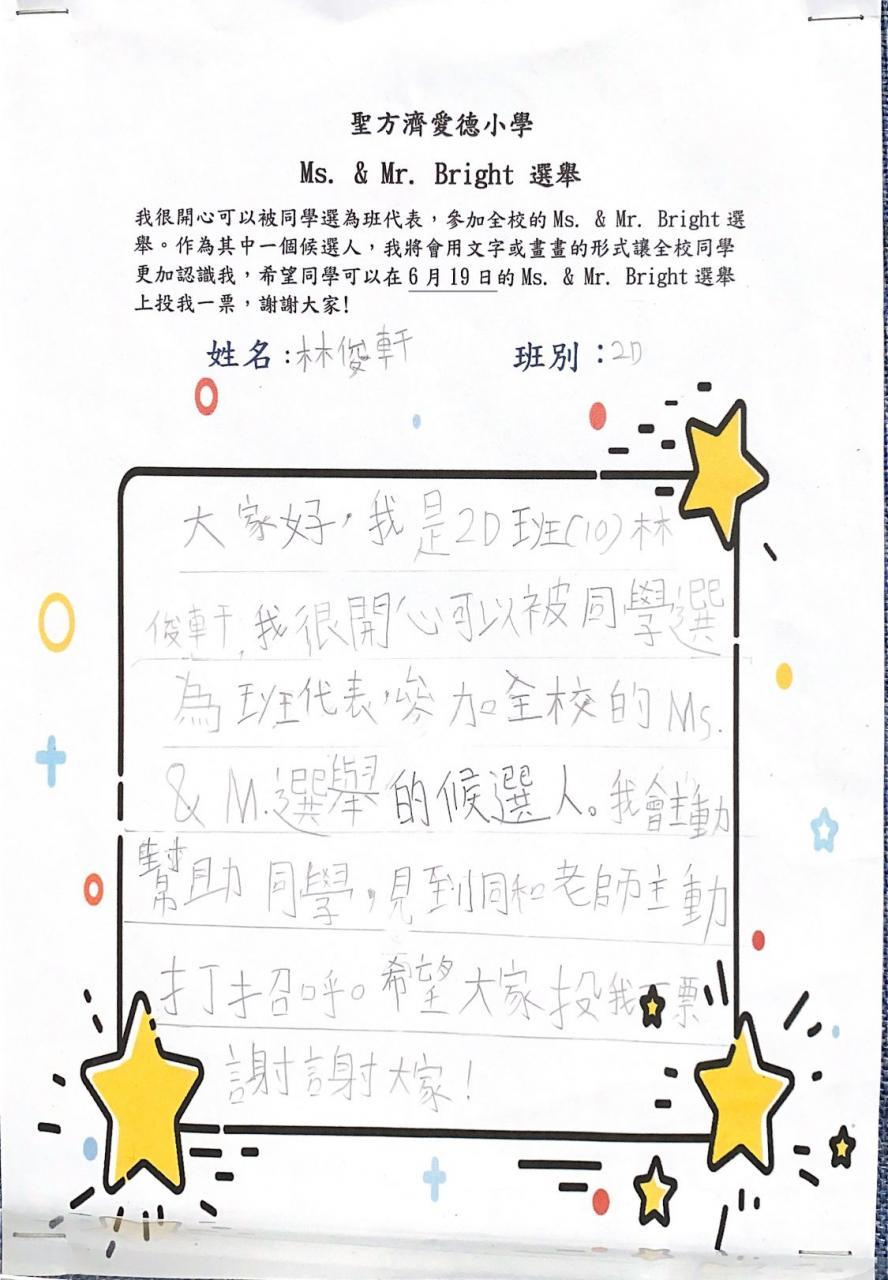 聖方濟愛德小學
Ms. & Mr. Bright 選舉
我很開心可以被同學選為班代表，參加全校的 Ms. & Mr. Bright 選
舉。作為其中一個候選人，我將會用文字或畫畫的形式讓全校同學
更加認識我，希望同學可以在 6 月 19 日的 Ms. & Mr. Bright 選舉
上投我一票，謝謝大家!
姓名：林俊軒 班別：2D
大家好，我是2D班(10)林
俊軒，我很開心可以被同學選
為班代表，參加全校的 Ms.
& M.選舉的候選人。我會主動
幫助同學，見到同和老師主動
打招呼。希望大家投我一票
謝謝大家！